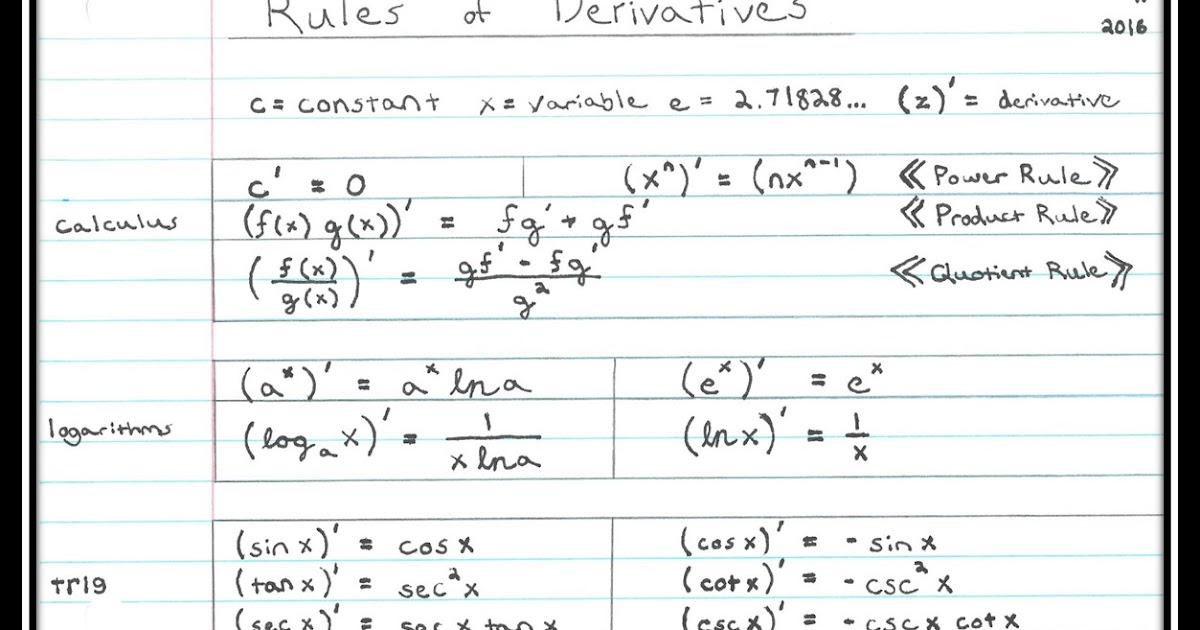 Rules of Derivatives
2016
c = constant x = variable e = 2.71828... (z)' = derivative
c' = 0 (xⁿ)' = (nxⁿ⁻¹) ⟪Power Rule⟫
calculus (f(x) g(x))' = fg' + gf' ⟪Product Rule⟫
(f(x)/g(x))' = (gf' - fg')/g² ⟪Quotient Rule⟫
(aˣ)' = aˣ ln a (eˣ)' = eˣ
logarithms (logₐ x)' = 1/(x ln a) (ln x)' = 1/x
(sin x)' = cos x (cos x)' = - sin x
trig (tan x)' = sec² x (cot x)' = - csc² x
(sec x)' = sec x tan x (csc x)' = - csc x cot x